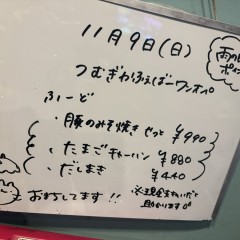 11月9日(日)
雨の日
ポイ
つむぎかふぇばーワンオペ
ふーど
・豚のみそ焼き せっと ¥990
・たまごチャーハン ¥880
・だしまき ¥440
おまちしてます!!
※現金支払いだと
助かります